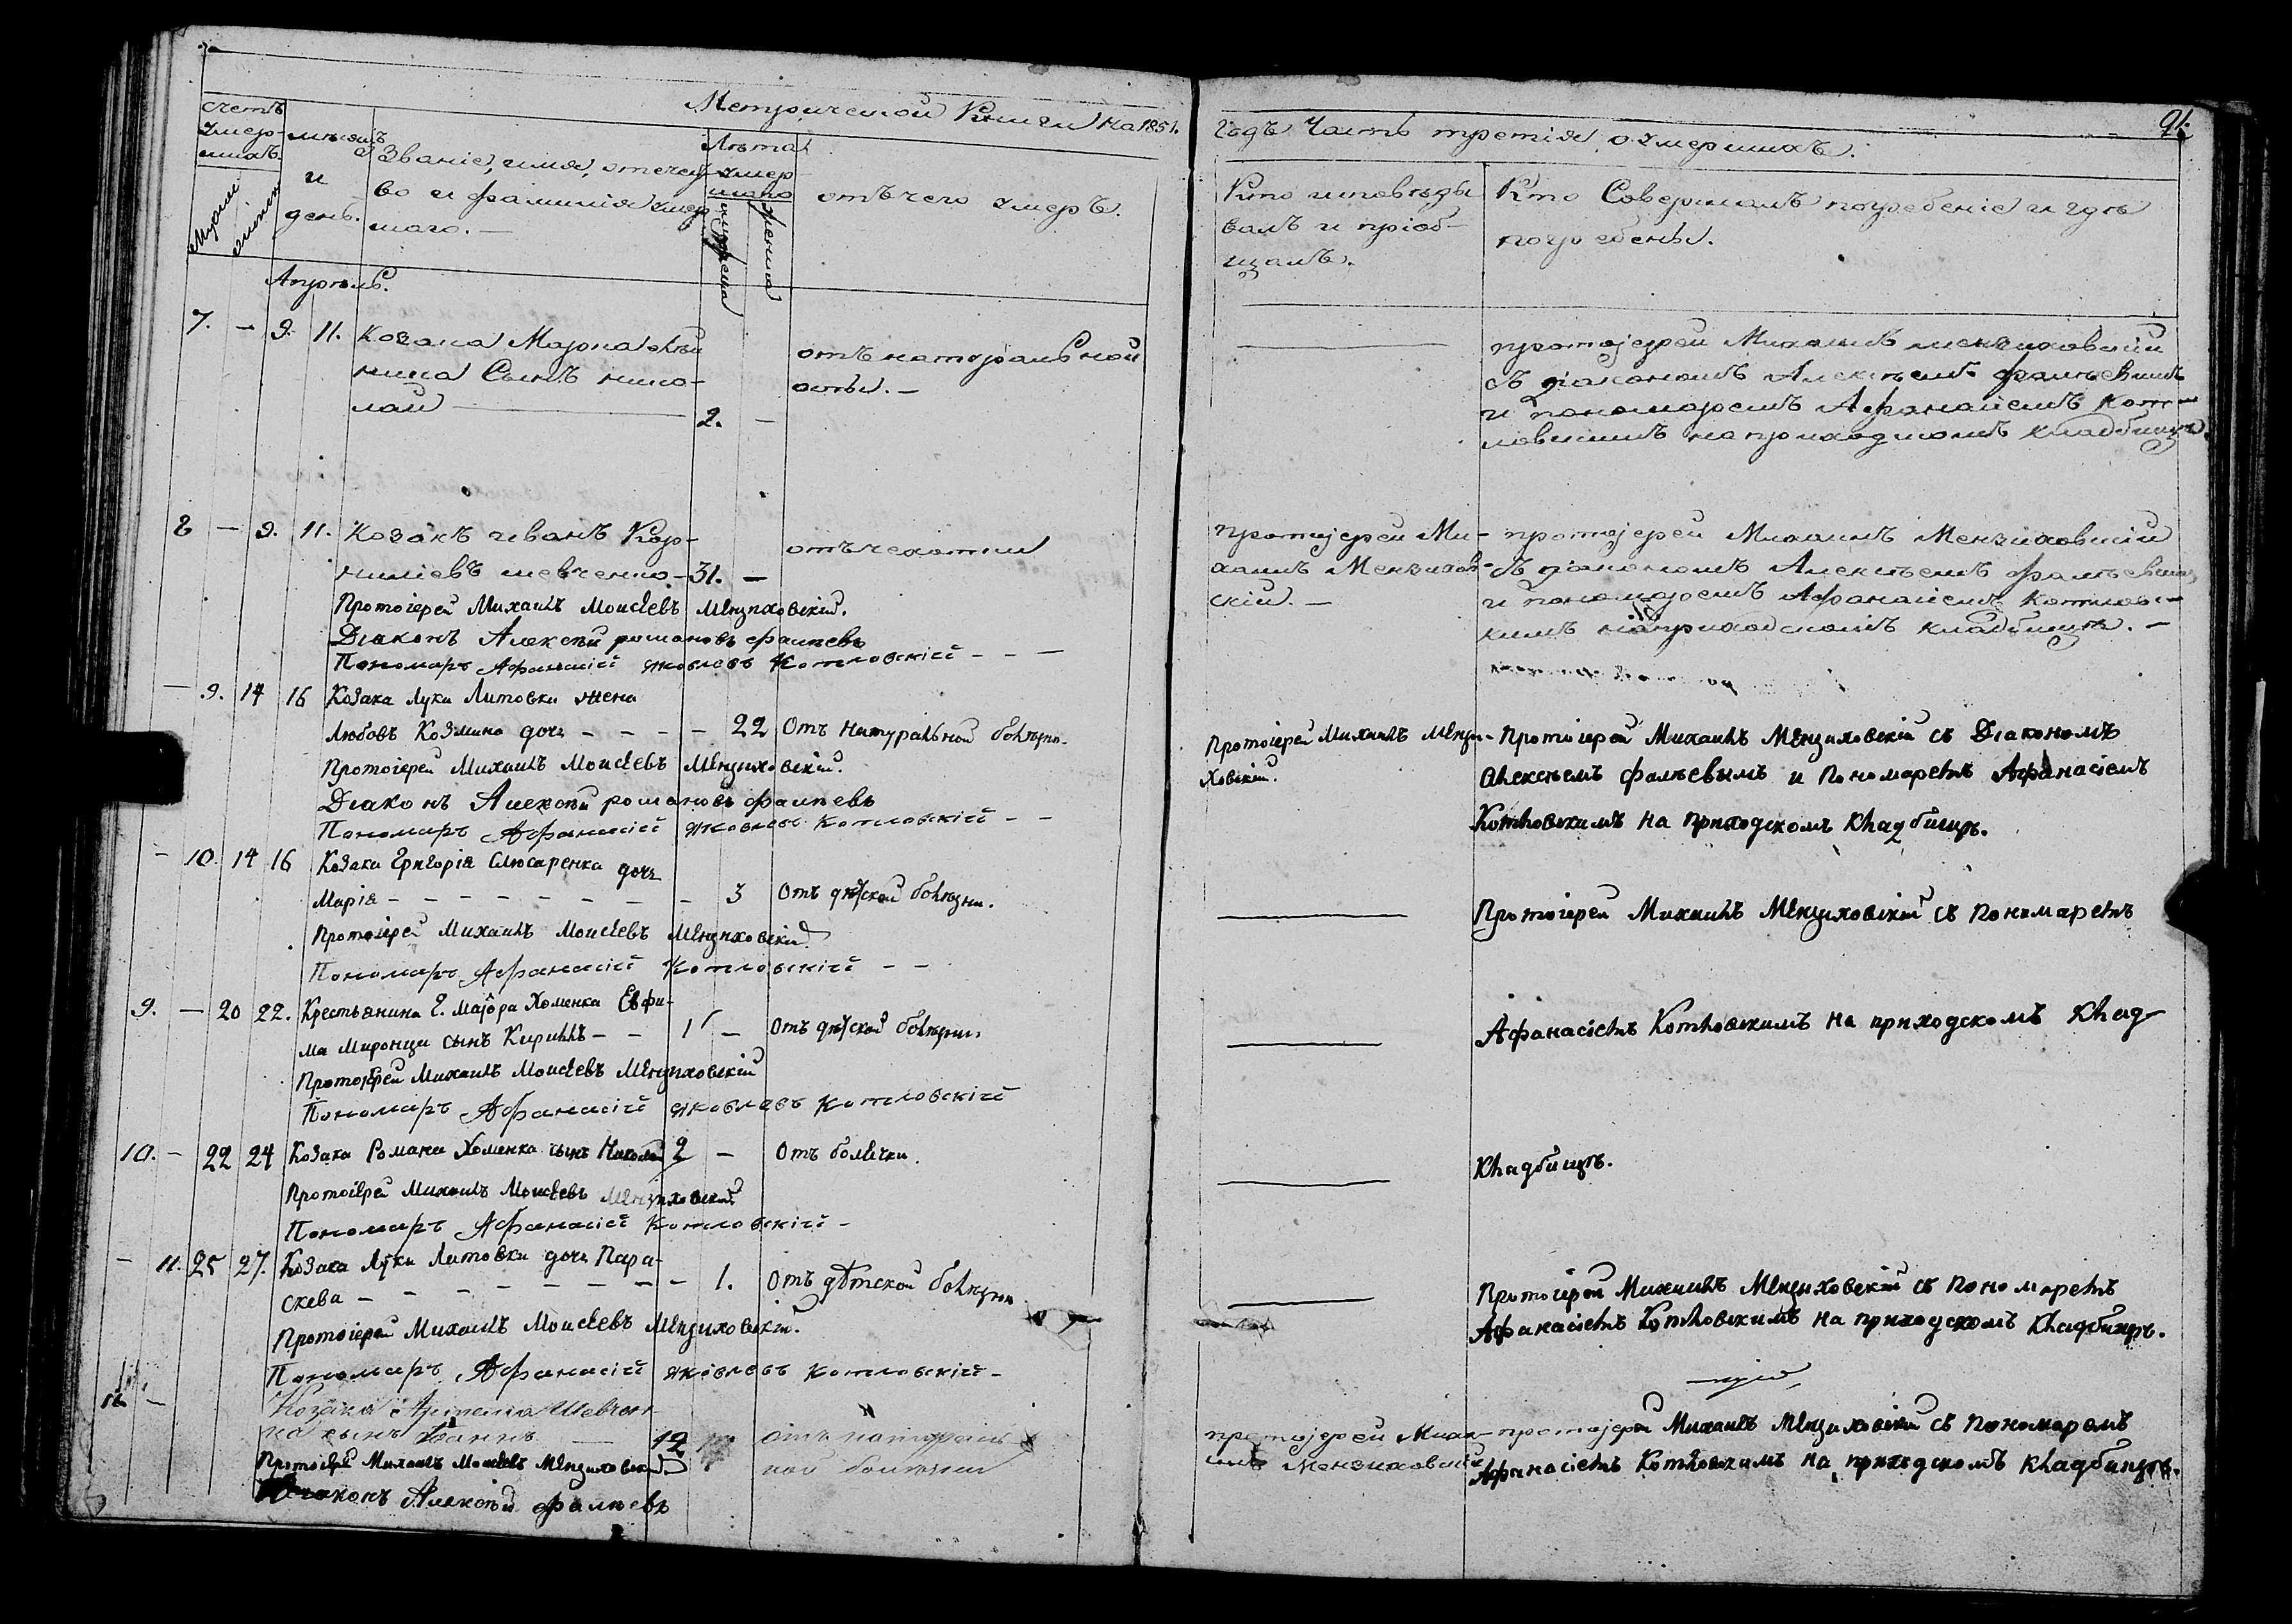 Метрической Книги на 1851.
годъ Часть третія, о умершихъ.
91.
счетъ умер-
шихъ.
Мужеска
женска
мѣсяцъ
и
день.
Званіе, имя, отечест-
во и фамилія умер-
шаго. —
Лѣта
умер-
шаго
мужеска
женска
отъ чего умеръ.
Кто исповѣды-
валъ и пріоб-
щалъ.
Кто Совершалъ погребеніе и гдѣ
погребены.
Апрѣль.
7. — 9. 11. Козака Марка
Сынъ нико-
лай — 2. —
отъ натуральной
оспы. —
протоіерей Михаилъ мензиховскій
съ діакономъ Алексѣемъ фалѣевымъ
и пономаремъ Афанасіемъ Кот-
ловскимъ на приходскомъ кладбищѣ.
8 — 9. 11. Козакъ иванъ Кор-
ниліевъ шевченко — 31. —
отъ чехотки
протоіерей Ми-
хаилъ Мензихов-
скій. —
протоіерей Михаилъ Мензиховскій
съ діакономъ Алексѣемъ фалѣевымъ
и пономаремъ Афанасіемъ Котловс-
кимъ на приходскомъ кладбищѣ. —
Протоіерей Михаилъ Моисеевъ Мензиховскій.
Діаконъ Алексѣй романовъ фалѣевъ
Пономарь Афанасій яковлевъ Котловскій — — —
— 9. 14 16 Козака Луки Литовки жена
Любовь Козмина дочь — — — — 22 Отъ натуральной болѣзни.
Протоіерей Михаилъ Мензи-
ховскій.
Протоіерей Михаилъ Мензиховскій съ Діакономъ
Алексѣемъ фалѣевымъ и Пономаремъ Афанасіемъ
Котловскимъ на приходскомъ кладбищѣ.
Протоіерей Михаилъ Моисеевъ Мензиховскій.
Діаконъ Алексѣй романовъ фалѣевъ
Пономарь Афанасій яковлевъ Котловскій — —
— 10. 14 16 Козака Григорія Слюсаренка дочь
Марія — — — — — — — — 3 Отъ дѣтской болѣзни.
Протоіерей Михаилъ Мензиховскій съ Пономаремъ
Протоіерей Михаилъ Моисеевъ Мензиховскій.
Пономарь Афанасій Котловскій — —
9. — 20 22. Крестьянина Г. Маіора Хоменка Евфи-
ма Миронци сынъ Кириллъ — — 1 — Отъ дѣтской болѣзни.
Афанасіемъ Котловскимъ на приходскомъ Клад-
Протоіерей Михаилъ Моисеевъ Мензиховскій
Пономарь Афанасій яковлевъ Котловскій
10. — 22 24 Козака Романа Хоменка сынъ Николай 2 — Отъ болячки.
Кладбищѣ.
Протоіерей Михаилъ Моисеевъ Мензиховскій
Пономарь Афанасій Котловскій —
— 11. 25 27. Козака Луки Литовки дочь Пара-
скева — — — — — — — 1. Отъ дѣтской болѣзни
Протоіерей Михаилъ Мензиховскій съ Пономаремъ
Афанасіемъ Котловскимъ на приходскомъ кладбищѣ.
Протоіерей Михаилъ Моисеевъ Мензиховскій.
Пономарь Афанасій яковлевъ Котловскій —
— Козака Артема Шевчен-
ка сынъ 12
отъ натураль-
ной болѣзни
протоіерей Миха-
илъ Мензиховскій
протоіерей Михаилъ Мензиховскій съ Пономаремъ
Афанасіемъ Котловскимъ на приходскомъ кладбищѣ.
Протоіерей Михаилъ Моисеевъ Мензиховскій.
Діаконъ Алексѣй фалѣевъ